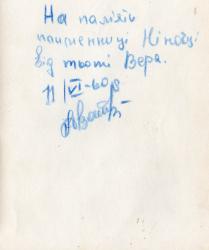 На память
племенниці Ніночці
від тьоті Вера.
11/VI-60р